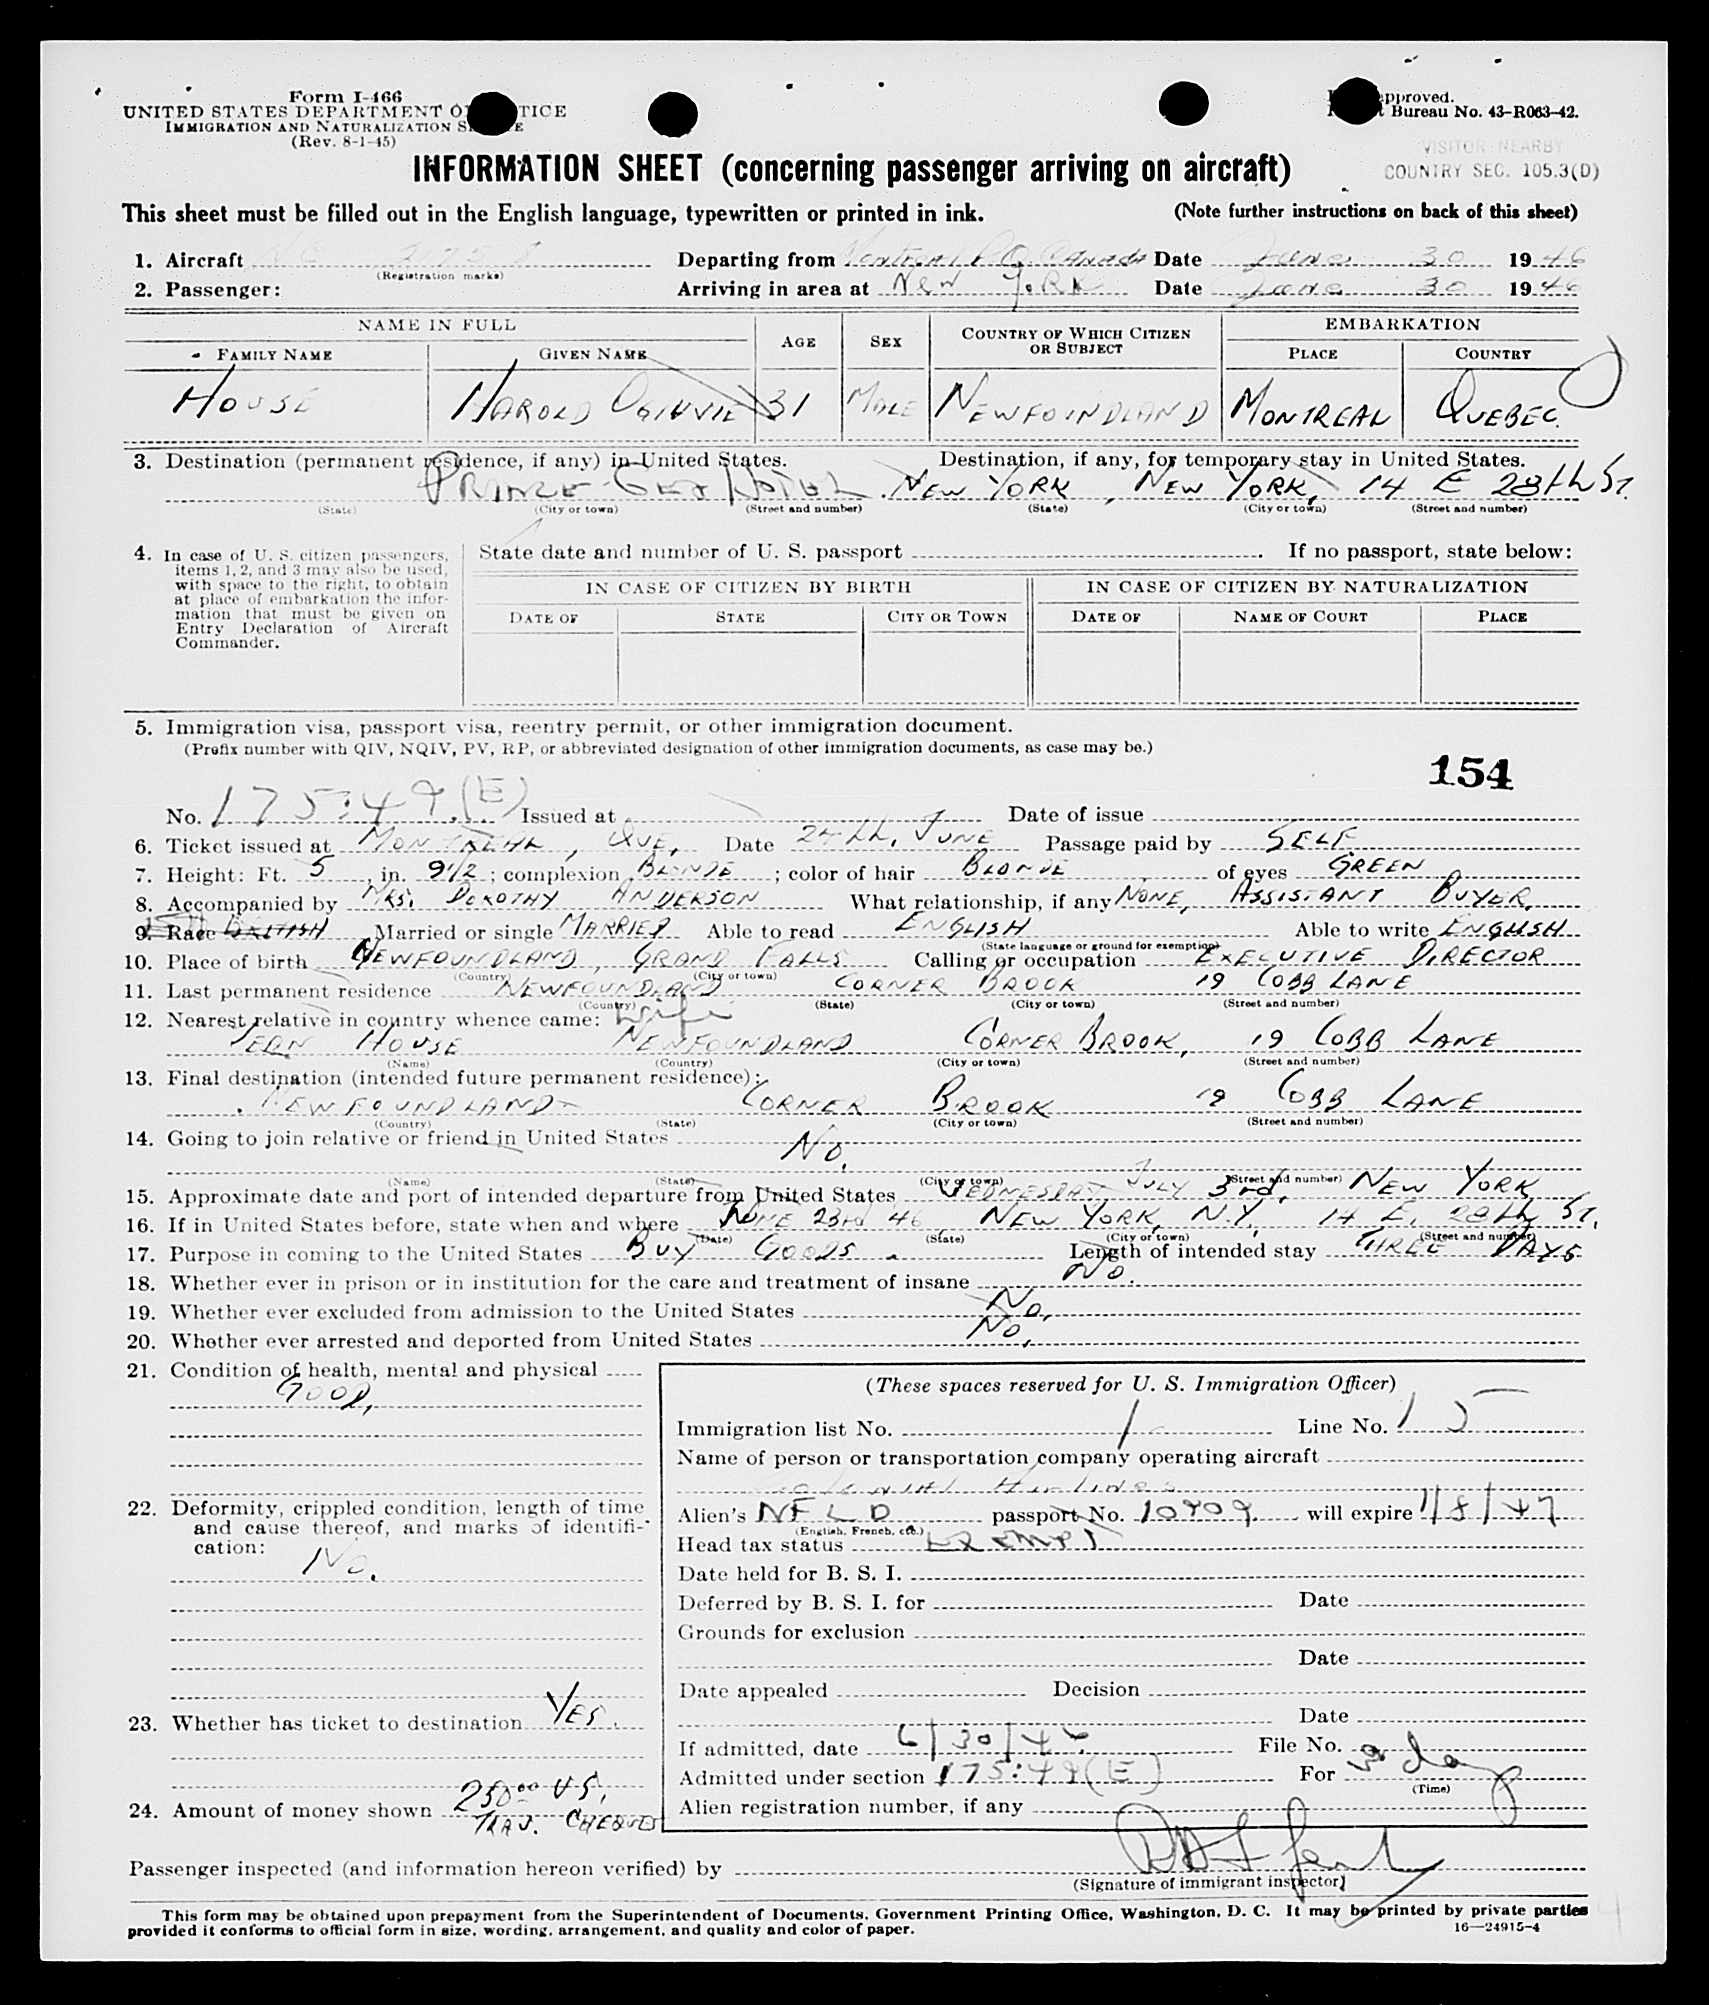 Form I-466
UNITED STATES DEPARTMENT OF JUSTICE
IMMIGRATION AND NATURALIZATION SERVICE
(Rev. 8-1-45)
pproved.
Bureau No. 43-R063-42.
VISITOR NEARBY
COUNTRY SEC. 105.3(D)
INFORMATION SHEET (concerning passenger arriving on aircraft)
This sheet must be filled out in the English language, typewritten or printed in ink. (Note further instructions on back of this sheet)
1. Aircraft Departing from Montreal P.Q. Canada Date June 30 1946
(Registration marks)
2. Passenger: Arriving in area at New York Date June 30 1946
NAME IN FULL AGE SEX COUNTRY OF WHICH CITIZEN OR SUBJECT EMBARKATION
FAMILY NAME GIVEN NAME PLACE COUNTRY
HOUSE HAROLD OGILVIE 31 MALE NEWFOUNDLAND MONTREAL QUEBEC.
3. Destination (permanent residence, if any) in United States. Destination, if any, for temporary stay in United States.
PRINCE GEO HOTEL NEW YORK, NEW YORK, 14 E 28th ST.
(State) (City or town) (Street and number) (State) (City or town) (Street and number)
4. In case of U. S. citizen passengers, items 1, 2, and 3 may also be used, with space to the right, to obtain at place of embarkation the information that must be given on Entry Declaration of Aircraft Commander.
State date and number of U. S. passport . If no passport, state below:
IN CASE OF CITIZEN BY BIRTH IN CASE OF CITIZEN BY NATURALIZATION
DATE OF STATE CITY OR TOWN DATE OF NAME OF COURT PLACE
5. Immigration visa, passport visa, reentry permit, or other immigration document.
(Prefix number with QIV, NQIV, PV, RP, or abbreviated designation of other immigration documents, as case may be.)
154
No. 175:49.(E) Issued at Date of issue
6. Ticket issued at MONTREAL, QUE, Date 24th, JUNE Passage paid by SELF
7. Height: Ft. 5, in. 9 1/2; complexion BLONDE; color of hair BLONDE of eyes GREEN
8. Accompanied by MRS. DOROTHY ANDERSON What relationship, if any NONE, ASSISTANT BUYER.
9. Race BRITISH Married or single MARRIED Able to read ENGLISH Able to write ENGLISH
(State language or ground for exemption)
10. Place of birth NEWFOUNDLAND, GRAND FALLS Calling or occupation EXECUTIVE DIRECTOR
(Country) (City or town)
11. Last permanent residence NEWFOUNDLAND CORNER BROOK 19 COBB LANE
(Country) (State) (City or town) (Street and number)
12. Nearest relative in country whence came: Wife
JEAN HOUSE NEWFOUNDLAND CORNER BROOK, 19 COBB LANE
(Name) (Country) (City or town) (Street and number)
13. Final destination (intended future permanent residence):
NEWFOUNDLAND CORNER BROOK 19 COBB LANE
(Country) (State) (City or town) (Street and number)
14. Going to join relative or friend in United States NO.
(Name) (State) (City or town) (Street and number)
15. Approximate date and port of intended departure from United States WEDNESDAY JULY 3rd, NEW YORK
16. If in United States before, state when and where JUNE 23rd 46, NEW YORK, N.Y. 14 E. 28th ST.
(Date) (State) (City or town) (Street and number)
17. Purpose in coming to the United States BUY GOODS. Length of intended stay THREE DAYS
18. Whether ever in prison or in institution for the care and treatment of insane NO.
19. Whether ever excluded from admission to the United States NO.
20. Whether ever arrested and deported from United States NO.
21. Condition of health, mental and physical
GOOD.
22. Deformity, crippled condition, length of time and cause thereof, and marks of identification:
NO.
23. Whether has ticket to destination YES.
24. Amount of money shown 250.00 US. TRAV. CHEQUES
(These spaces reserved for U. S. Immigration Officer)
Immigration list No. 1 Line No. 15
Name of person or transportation company operating aircraft
Colonial Airlines
Alien's NFLD passport No. 10909 will expire 1/8/47
(English, French, etc.)
Head tax status Exempt
Date held for B. S. I.
Deferred by B. S. I. for Date
Grounds for exclusion
Date
Date appealed Decision
Date
If admitted, date 6/30/46 File No.
Admitted under section 175:49(E) For 3 day
(Time)
Alien registration number, if any
Passenger inspected (and information hereon verified) by
(Signature of immigrant inspector)
This form may be obtained upon prepayment from the Superintendent of Documents, Government Printing Office, Washington, D. C. It may be printed by private parties
provided it conforms to official form in size, wording, arrangement, and quality and color of paper. 16—24915-4